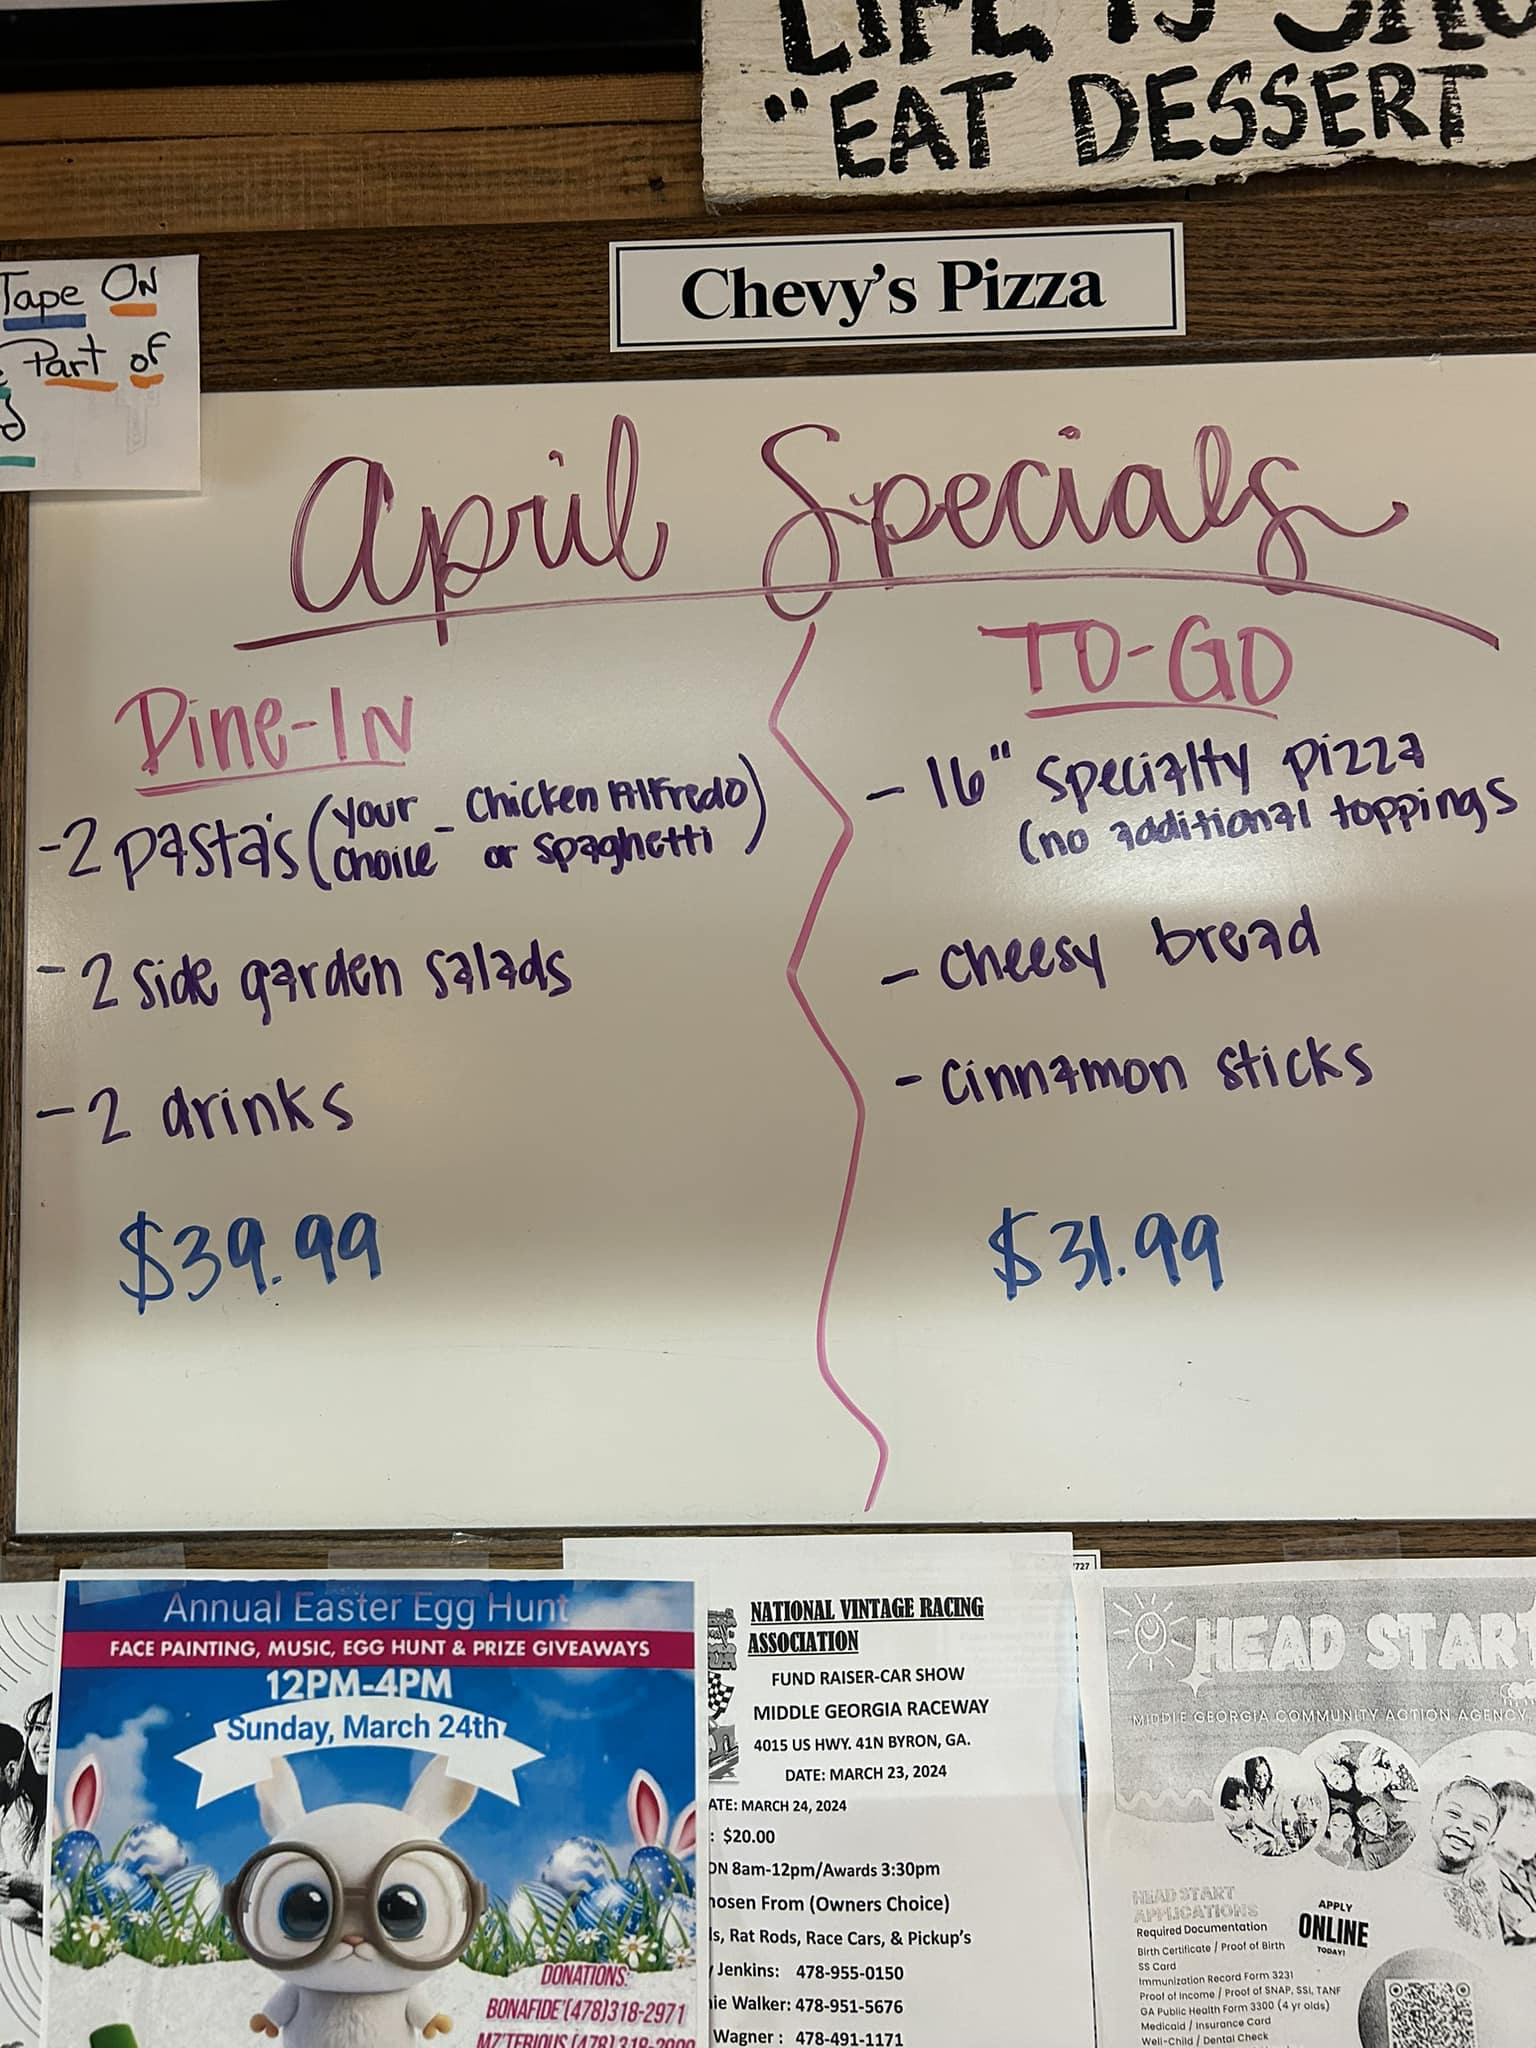 LIFE IS
"EAT DESSERT
Chevy's Pizza
Tape ON
Part of
April Specials
Dine-IN
-2 pasta's (your choice - Chicken Alfredo or spaghetti)
-2 side garden salads
-2 drinks
$39.99
TO-GO
- 16" specialty pizza
(no additional toppings
- cheesy bread
- cinnamon sticks
$31.99
Annual Easter Egg Hunt
FACE PAINTING, MUSIC, EGG HUNT & PRIZE GIVEAWAYS
12PM-4PM
Sunday, March 24th
DONATIONS:
BONAFIDE'(478)318-2971
MZ'TERIOUS (478)
7727
NATIONAL VINTAGE RACING
ASSOCIATION
FUND RAISER-CAR SHOW
MIDDLE GEORGIA RACEWAY
4015 US HWY. 41N BYRON, GA.
DATE: MARCH 23, 2024
ATE: MARCH 24, 2024
: $20.00
ON 8am-12pm/Awards 3:30pm
hosen From (Owners Choice)
ls, Rat Rods, Race Cars, & Pickup's
y Jenkins: 478-955-0150
nie Walker: 478-951-5676
Wagner : 478-491-1171
HEAD START
MIDDLE GEORGIA COMMUNITY ACTION AGENCY
HEAD START
APPLICATIONS
Required Documentation
Birth Certificate / Proof of Birth
SS Card
Immunization Record Form 3231
Proof of Income / Proof of SNAP, SSI, TANF
GA Public Health Form 3300 (4 yr olds)
Medicaid / Insurance Card
Well-Child / Dental Check
APPLY
ONLINE
TODAY!